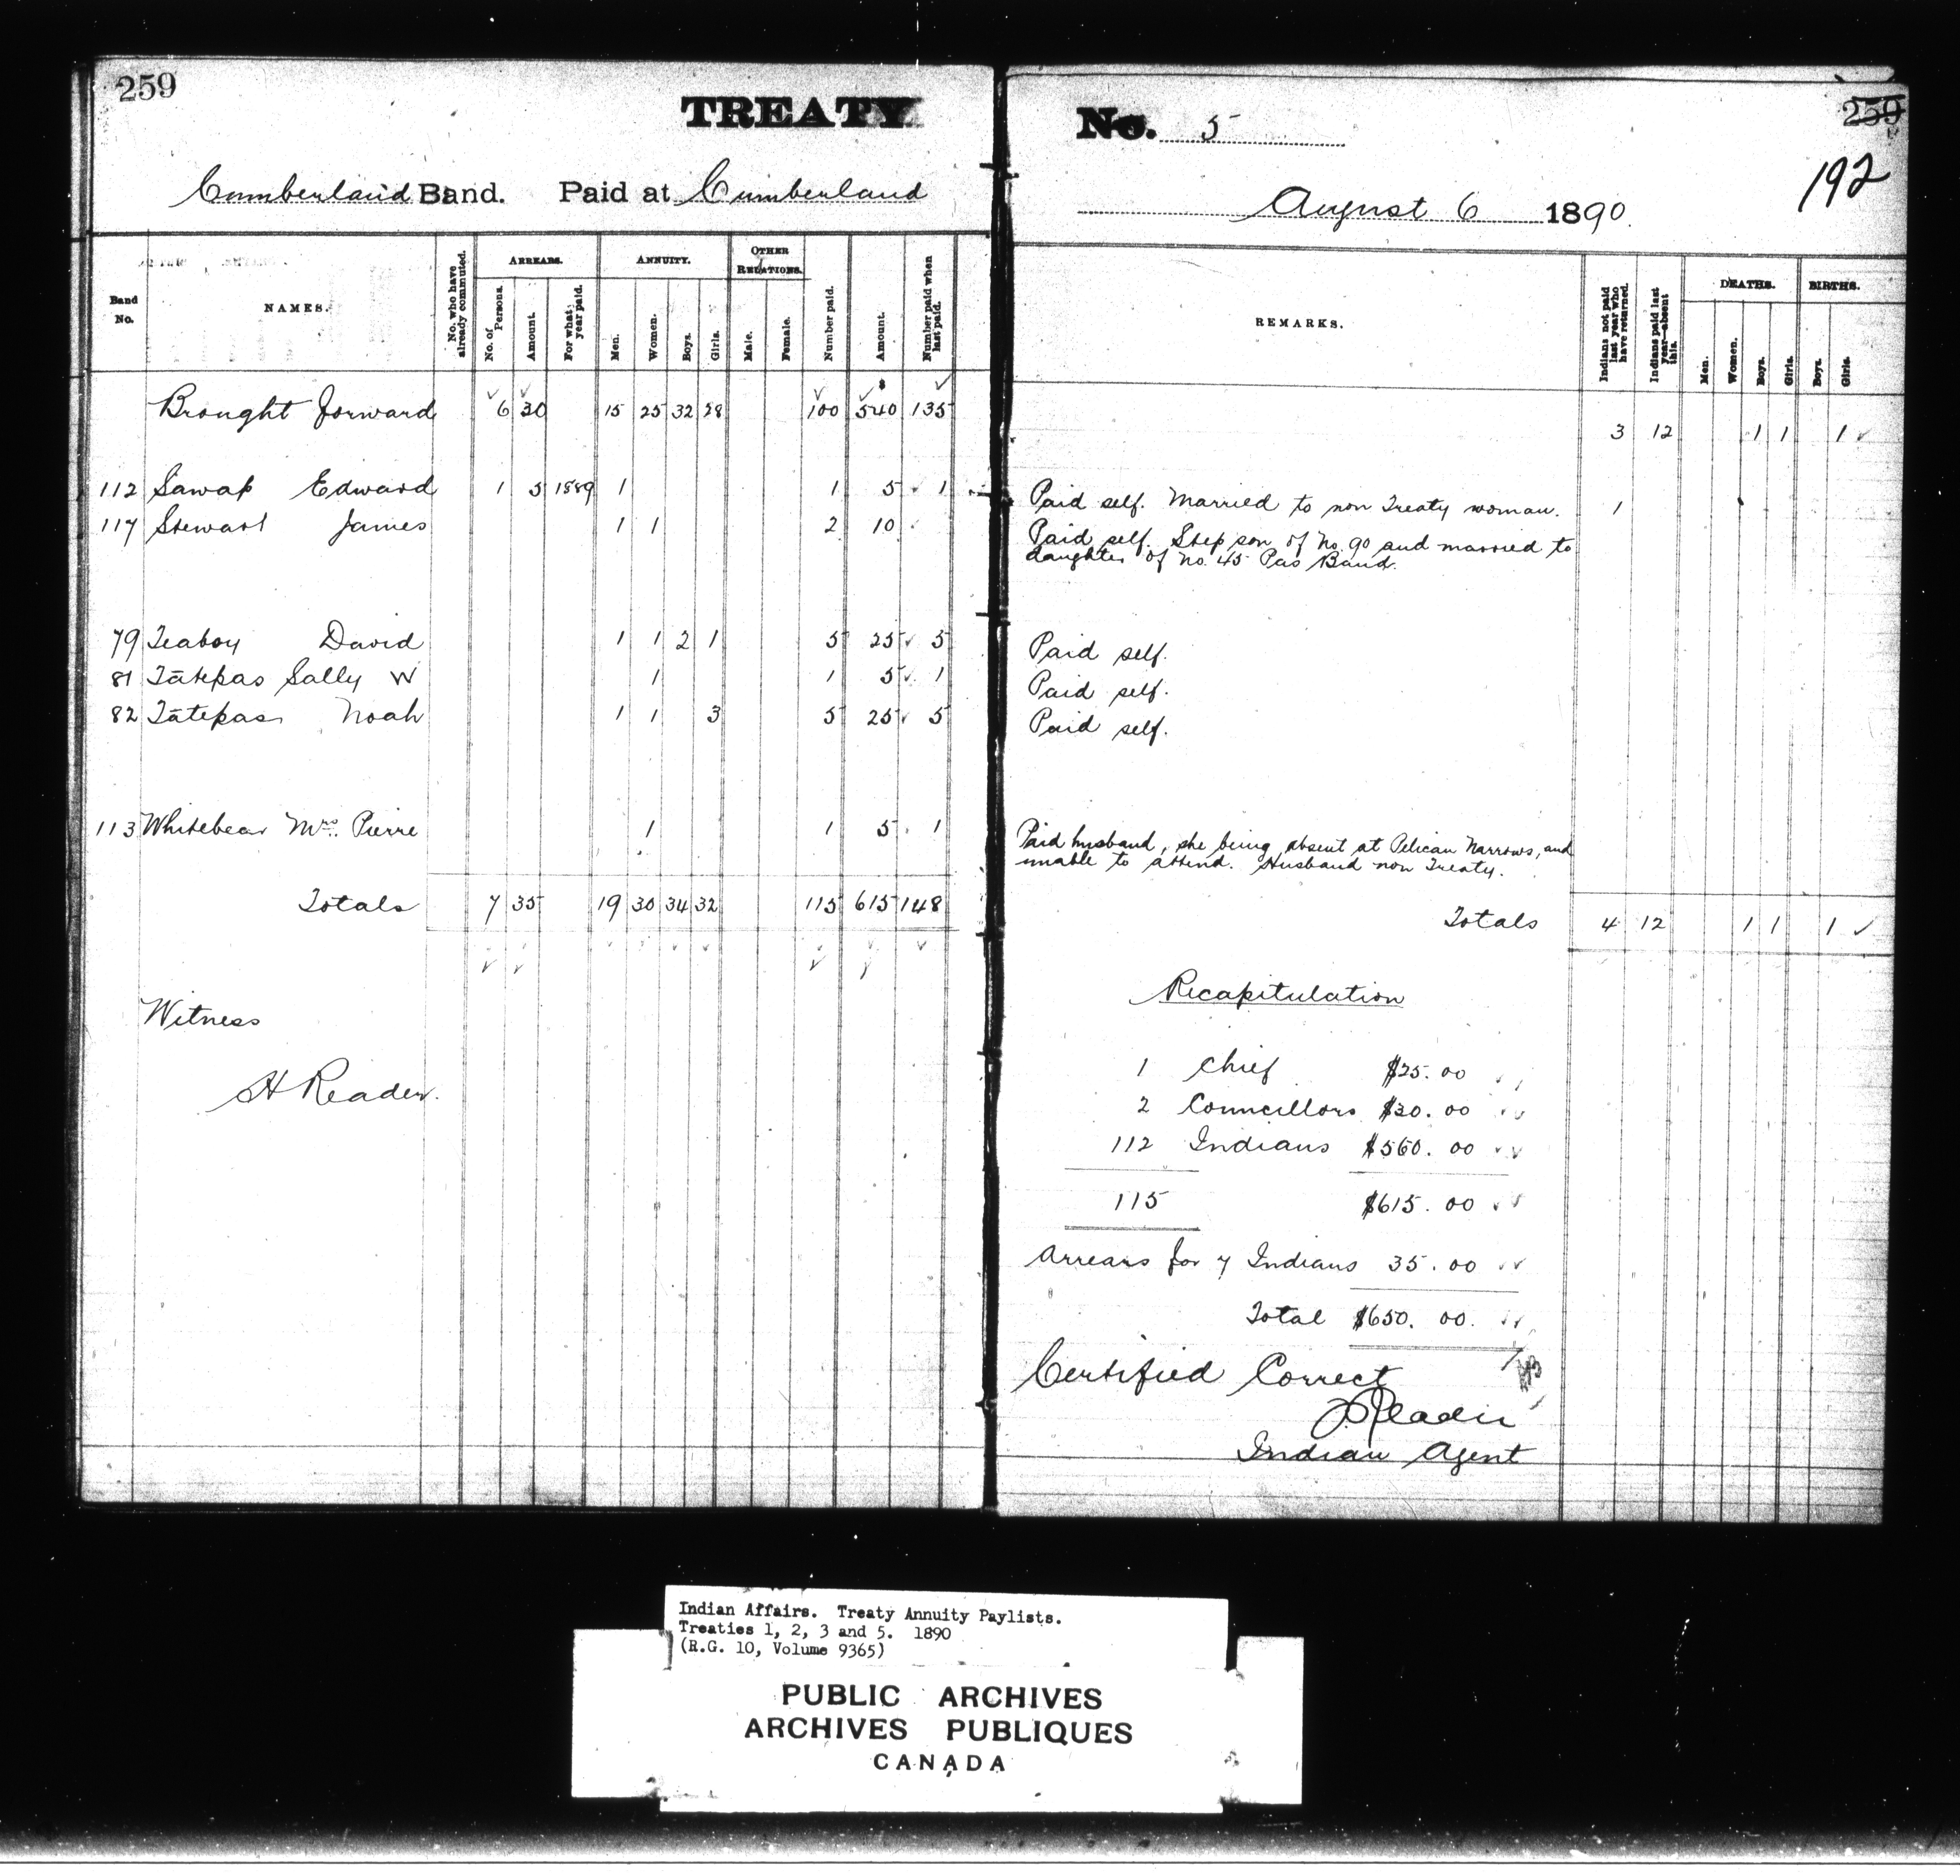 259
TREATY
No. 5
259
192
Cumberland Band. Paid at Cumberland
August 6 1890.
Band No.
NAMES.
No. who have already commuted.
ARREARS.
No. of Persons.
Amount.
For what year paid.
ANNUITY.
Men.
Women.
Boys.
Girls.
OTHER RELATIONS.
Male.
Female.
Number paid.
Amount.
Number paid when last paid.
REMARKS.
Indians not paid last year who have returned.
Indians paid last year—absent this.
DEATHS.
Men.
Women.
Boys.
Girls.
BIRTHS.
Boys.
Girls.
Brought forward 6 30 15 25 32 28 100 540 135
3 12 1 1 1
112 Sawap Edward 1 5 1889 1 1 5 1
Paid self. Married to non Treaty woman. 1
117 Stewart James 1 1 2 10
Paid self. Step son of No. 90 and married to
daughter of No. 45 Pas Band.
79 Teaboy David 1 1 2 1 5 25 5
Paid self.
81 Tātepas Sally W 1 1 5 1
Paid self.
82 Tātepas Noah 1 1 3 5 25 5
Paid self.
113 Whitebear Mrs. Pierre 1 1 5 1
Paid husband, she being absent at Pelican Narrows, and
unable to attend. Husband non Treaty.
Totals 7 35 19 30 34 32 115 615 148
Totals 4 12 1 1 1
Witness
H Reader.
Recapitulation
1 Chief $25.00
2 Councillors $30.00
112 Indians $560.00
115 $615.00
Arrears for 7 Indians 35.00
Total $650.00.
Certified Correct
J Reader
Indian Agent
Indian Affairs. Treaty Annuity Paylists.
Treaties 1, 2, 3 and 5. 1890
(R.G. 10, Volume 9365)
PUBLIC ARCHIVES
ARCHIVES PUBLIQUES
CANADA